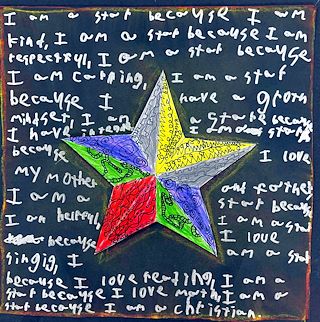 I am a star because I am
kind, I am a star because I am
respectful, I am a star because
I am carring, I am a star
because I have a groth
mindset, I am a star because
I have
because I love
my mother and father
I am a star because
I am helpful, I am a star
because I love
singig, I am a star
because I love reating, I am a
star because I love math, I am a
star because I am a christian.